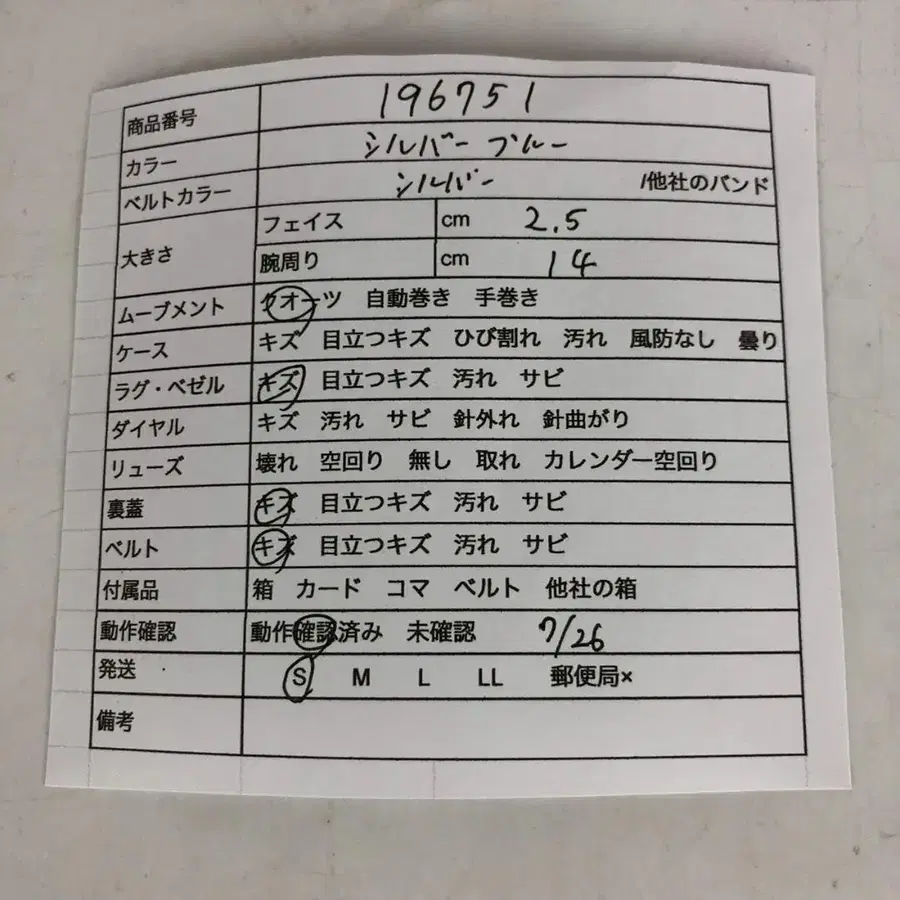 商品番号 196751
カラー シルバー ブルー
ベルトカラー シルバー /他社のバンド
大きさ フェイス cm 2.5
腕周り cm 14
ムーブメント クオーツ 自動巻き 手巻き
ケース キズ 目立つキズ ひび割れ 汚れ 風防なし 曇り
ラグ・ベゼル キズ 目立つキズ 汚れ サビ
ダイヤル キズ 汚れ サビ 針外れ 針曲がり
リューズ 壊れ 空回り 無し 取れ カレンダー空回り
裏蓋 キズ 目立つキズ 汚れ サビ
ベルト キズ 目立つキズ 汚れ サビ
付属品 箱 カード コマ ベルト 他社の箱
動作確認 動作確認済み 未確認 7/26
発送 S M L LL 郵便局×
備考